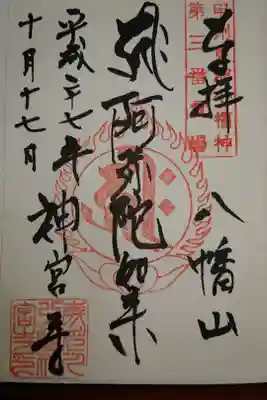 奉拝 八幡山
第三番
阿弥陀如来
神宮寺
平成二十七年
十月十七日